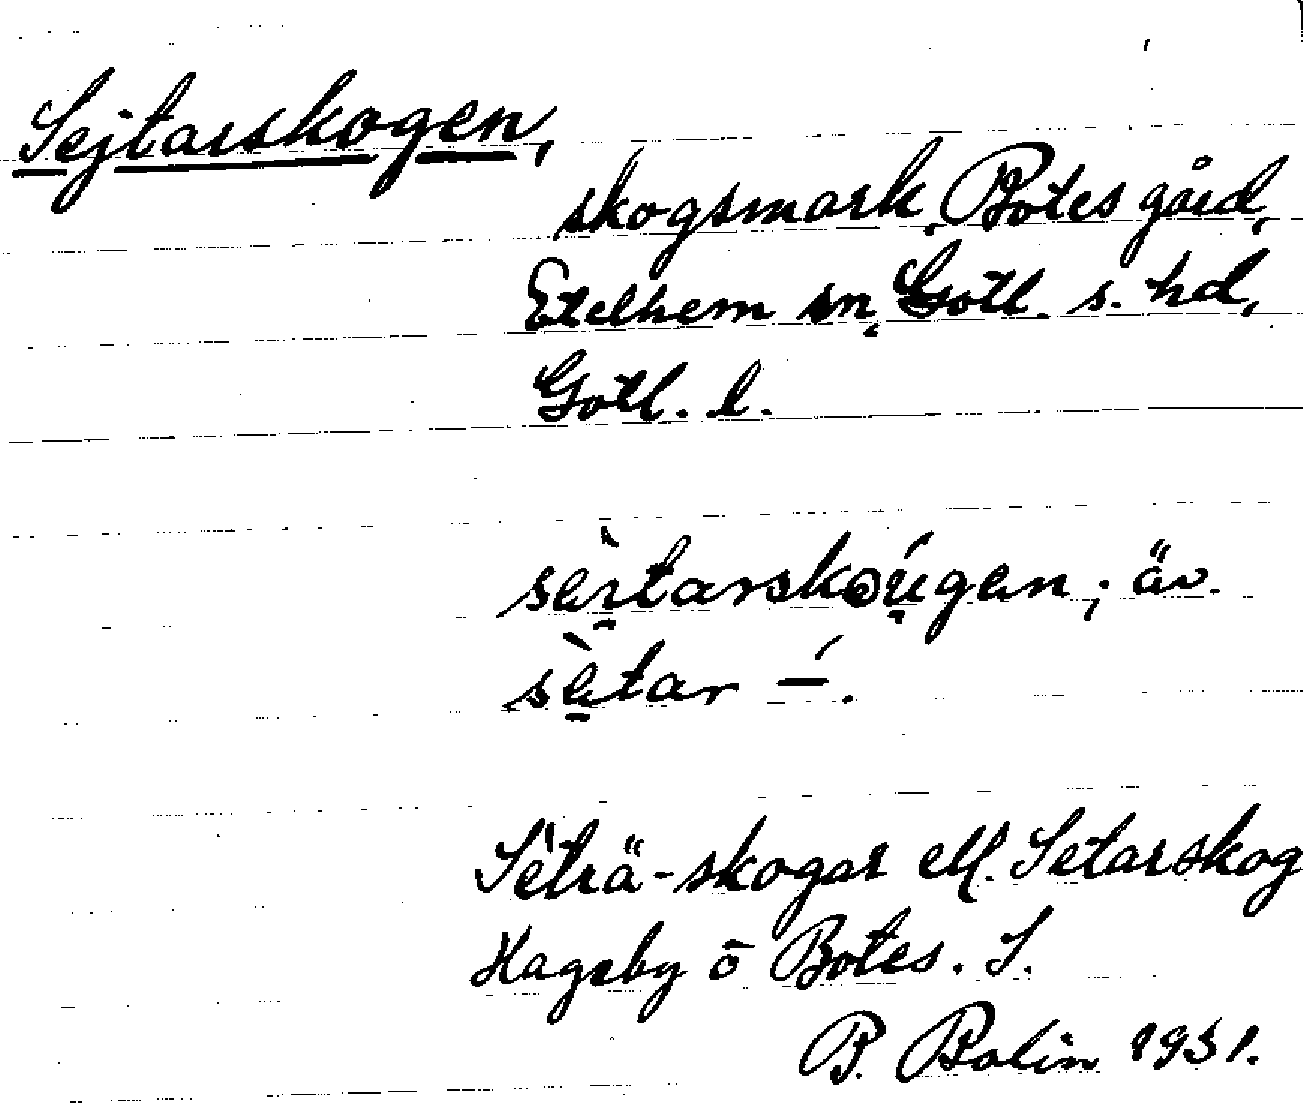 Sejtarskogen,
skogsmark, Botes gård,
Etelhem sn, Gotl. s. hd,
Gotl. l.
sèi̯tarskoú̯gen; äv.
sè̯tar –́.
Séträ-skogar ell. Setarskog
Hageby o Botes. S.
P. Bolin 1931.